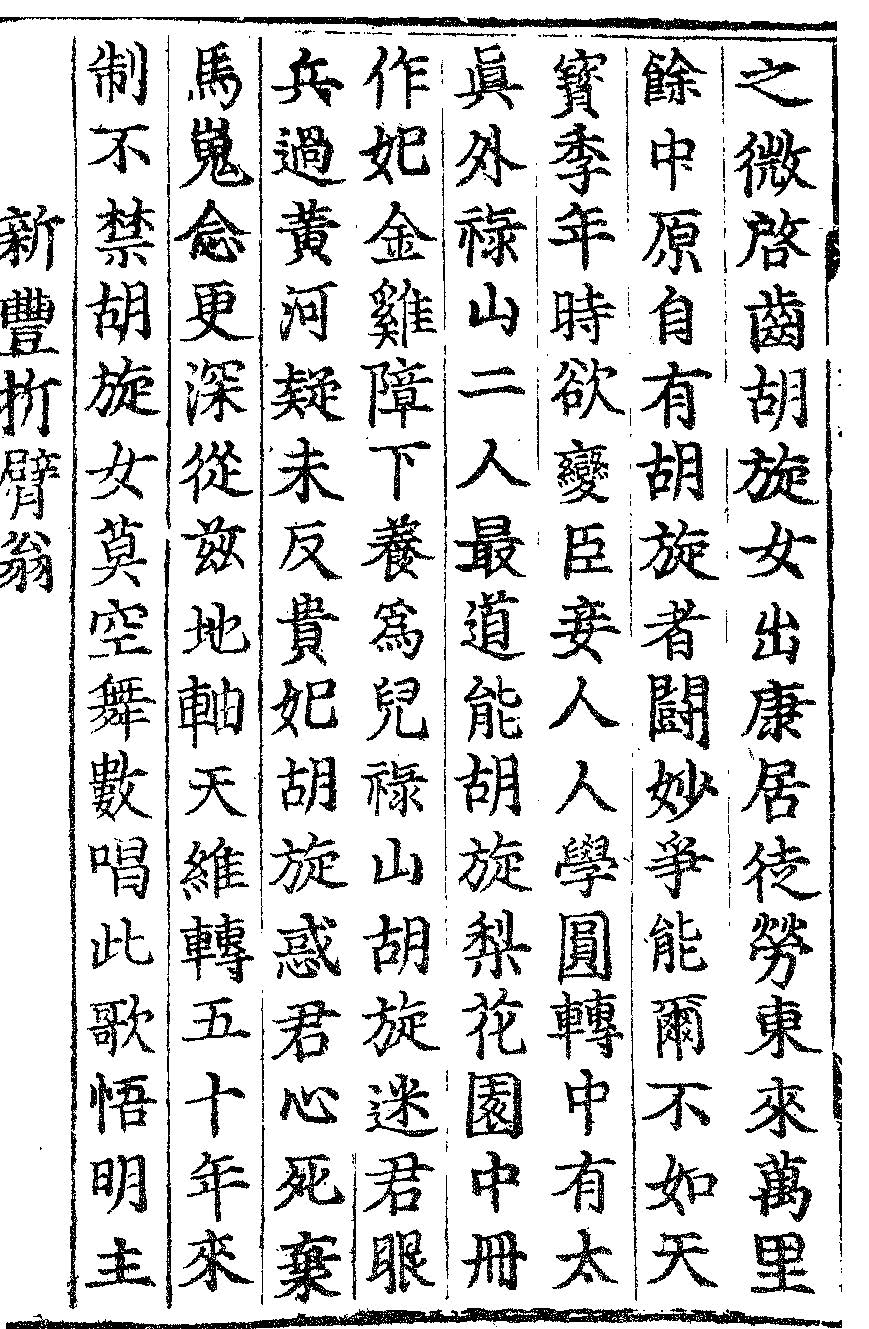 之微啓齒胡旋女出康居徒勞東來萬里
餘中原自有胡旋者鬪妙爭能爾不如天
寶季年時欲變臣妾人人學圓轉中有太
眞外祿山二人最道能胡旋梨花園中冊
作妃金雞障下養爲兒祿山胡旋迷君眼
兵過黃河疑未反貴妃胡旋惑君心死棄
馬嵬念更深從兹地軸天維轉五十年來
制不禁胡旋女莫空舞數唱此歌悟明主
新豐折臂翁